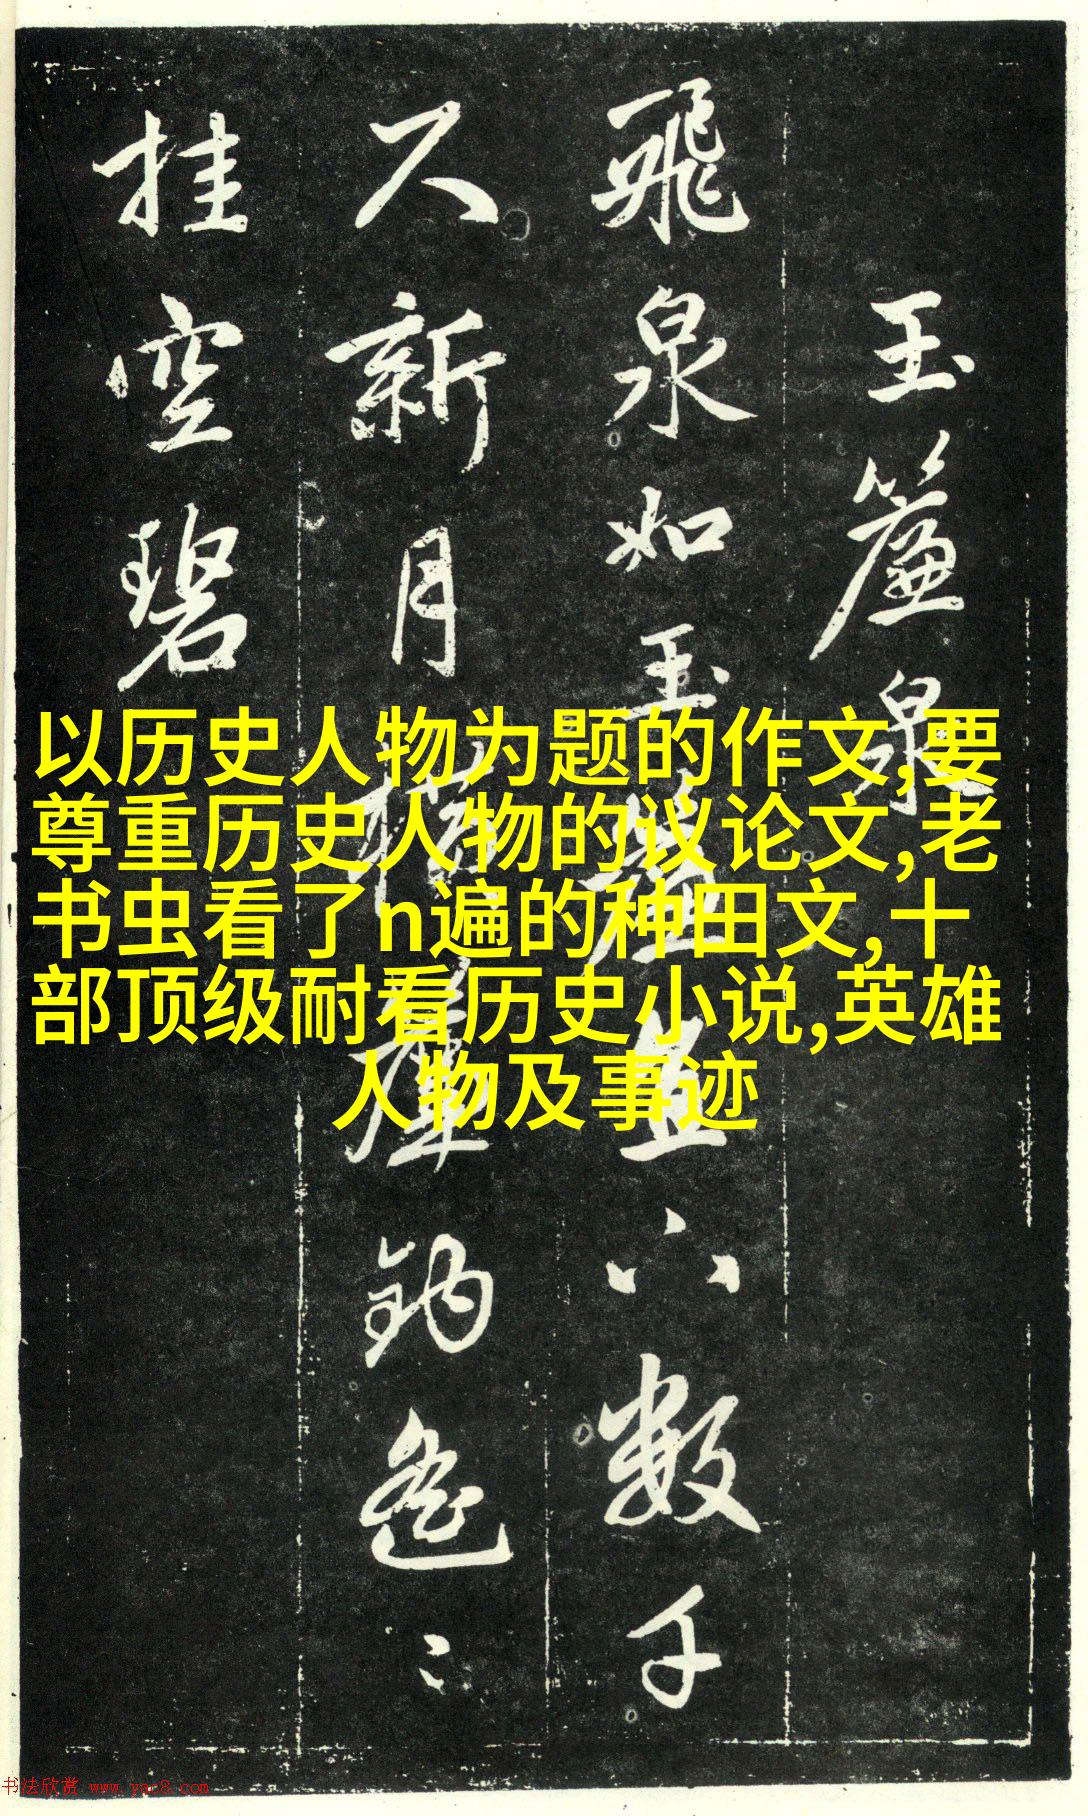 玉簾泉
飛泉如玉簾直下數千
尺新月橫簾鉤遙〻
挂空碧
以历史人物为题的作文,要
尊重历史人物的议论文,老
书虫看了n遍的种田文,十
部顶级耐看历史小说,英雄
人物及事迹
书法欣赏 www.yac8.com